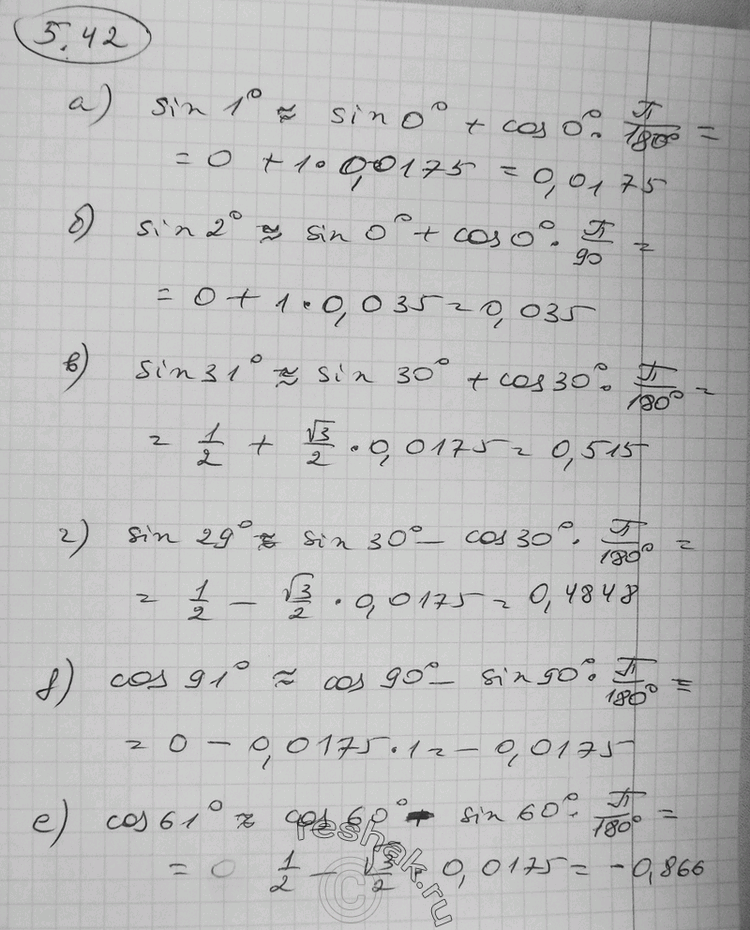 5.42
а) sin 1° ≈ sin 0° + cos 0° · π/180° =
= 0 + 1 · 0,0175 = 0,0175
б) sin 2° ≈ sin 0° + cos 0° · π/90 =
= 0 + 1 · 0,035 = 0,035
в) sin 31° ≈ sin 30° + cos 30° · π/180° =
= 1/2 + √3/2 · 0,0175 = 0,515
г) sin 29° ≈ sin 30° - cos 30° · π/180° =
= 1/2 - √3/2 · 0,0175 = 0,4848
д) cos 91° ≈ cos 90° - sin 90° · π/180° =
= 0 - 0,0175 · 1 = - 0,0175
е) cos 61° ≈ cos 60° - sin 60° · π/180° =
= 0 1/2 - √3/2 · 0,0175 = -0,866
reshak.ru
©